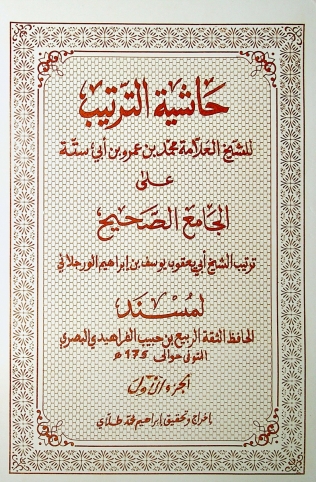 حاشية الترتيب
للشيخ العلامة محمد بن عمرو بن أبي ستة
على
الجامع الصحيح
ترتيب الشيخ أبي يعقوب يوسف بن إبراهيم الورجلاني
لمسند
الحافظ الثقة الربيع بن حبيب الفراهيدي البصري
المتوفى حوالى 175 هـ
الجزء الأول
إخراج وتحقيق إبراهيم محمد طلاي